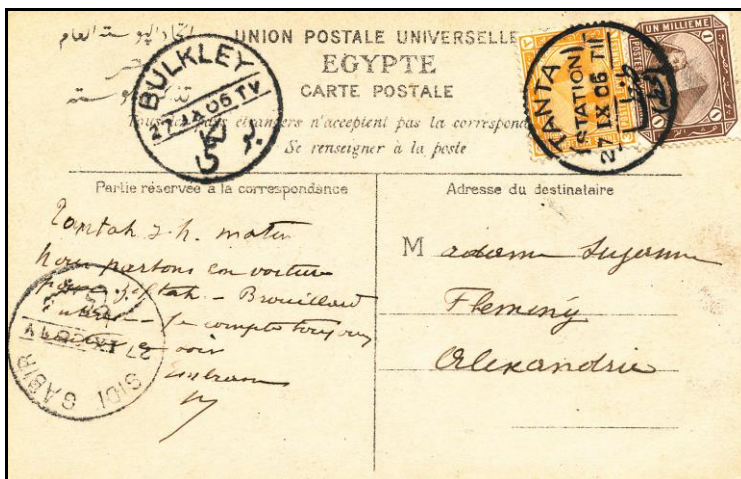 اتحاد البوسته العام
UNION POSTALE UNIVERSELLE
EGYPTE
CARTE POSTALE
Tous les pays étrangers n'acceptent pas la correspond
Se renseigner à la poste
BULKLEY
27 IX 06 TV
TANTA
(STATION)
27 IX 06 TII
طنطا
UN MILLIEME
POSTES
1
1
Partie réservée à la correspondance
Adresse du destinataire
Tantah 7 h. matin
Nous partons en voiture
pour Ziftah - Brouillard
Je compte toujours
voir
SIDI GABIR
27 IX 06 TV
Madame Suzanne
Fleming
Alexandrie